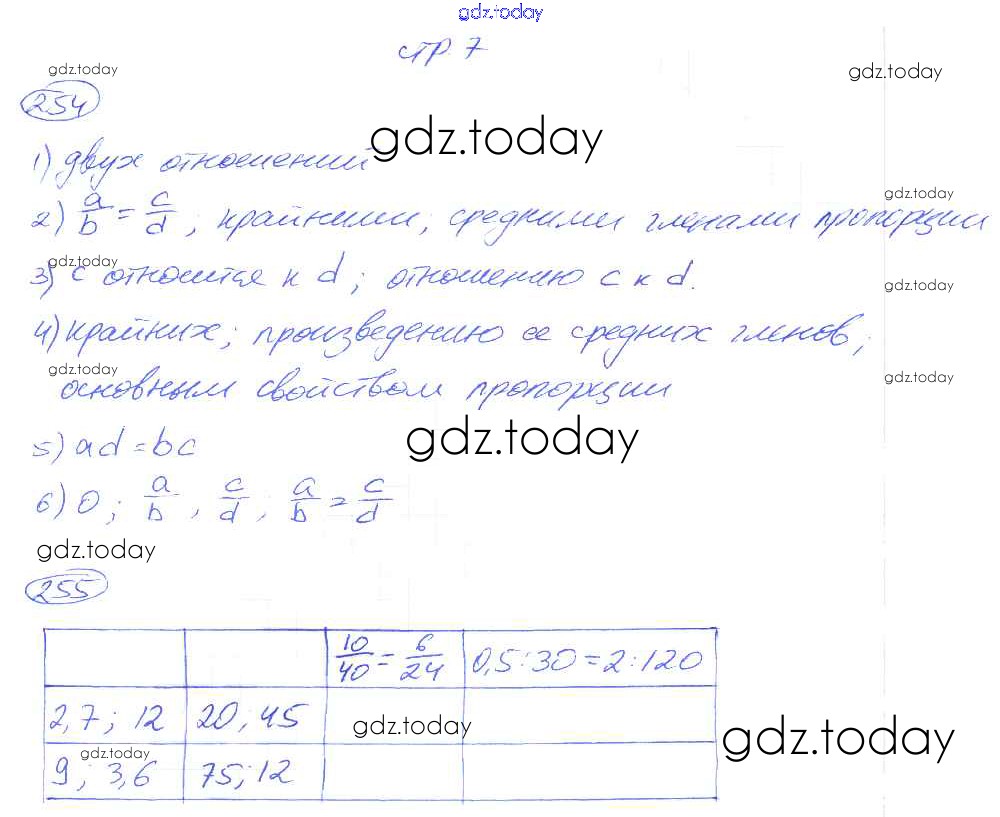 gdz.today
стр 7
gdz.today
gdz.today
254
gdz.today
1) двух отношений
gdz.today
2) a/b = c/d ; крайними; средними членами пропорции
gdz.today
3) c относится к d ; отношению c к d.
gdz.today
4) крайних; произведению ее средних членов;
gdz.today
gdz.today
основным свойством пропорции
gdz.today
5) ad = bc
6) 0 ; a/b , c/d ; a/b = c/d
gdz.today
255
10/40 = 6/24 0,5:30 = 2:120
2,7 ; 12 20 ; 45
gdz.today
gdz.today
gdz.today
9 ; 3,6 75 ; 12